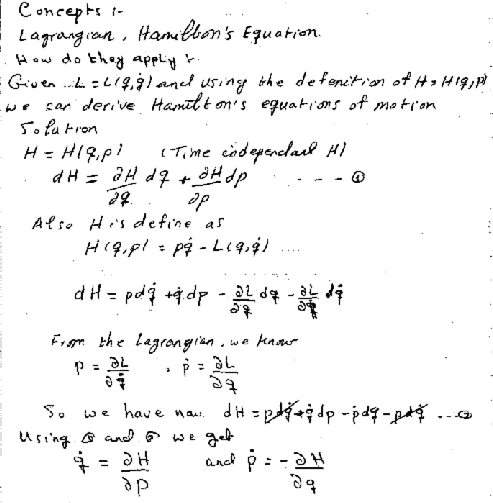 Concepts :-
Lagrangian, Hamilton's Equation.
How do they apply :-
Given L = L(q,q̇) and using the defenition of H = H(q,p)
we can derive Hamilton's equations of motion
Solution
H = H(q,p) (Time independent H)
dH = ∂H/∂q dq + ∂H/∂p dp - - - - ①
Also H is define as
H(q,p) = pq̇ - L(q,q̇) ....
dH = pdq̇ + q̇dp - ∂L/∂q dq - ∂L/∂q̇ dq̇
From the Lagrangian, we know
p = ∂L/∂q̇ , ṗ = ∂L/∂q
So we have now dH = pdq̇ + q̇dp - ṗdq - pdq̇ ...②
Using ① and ② we get
q̇ = ∂H/∂p and ṗ = - ∂H/∂q